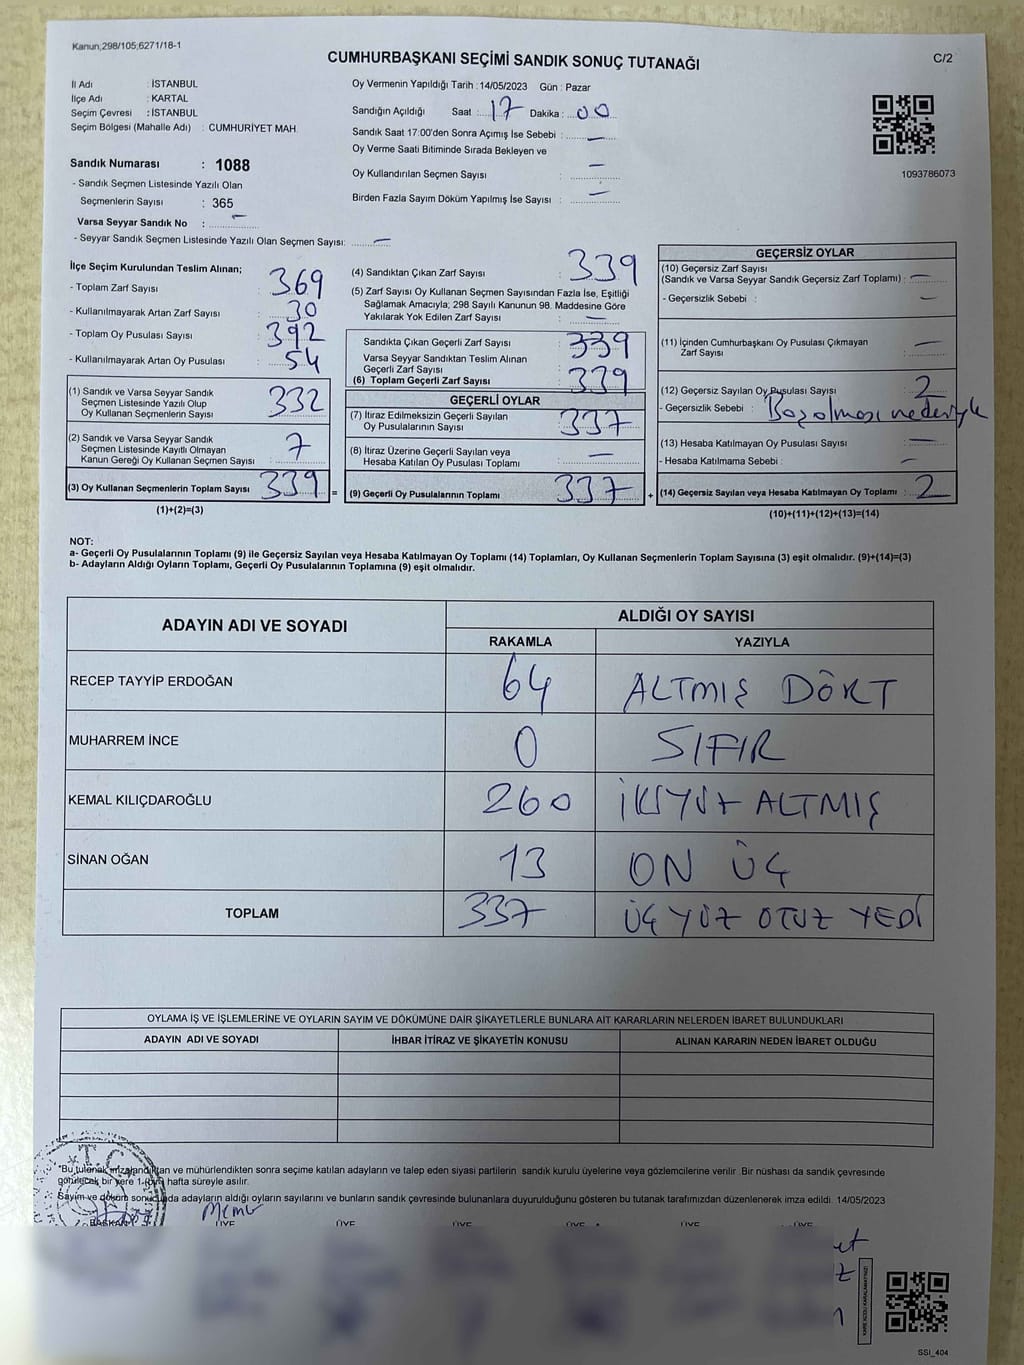 Kanun;298/105;6271/18-1
CUMHURBAŞKANI SEÇİMİ SANDIK SONUÇ TUTANAĞI
C/2
İl Adı : İSTANBUL
İlçe Adı : KARTAL
Seçim Çevresi : İSTANBUL
Seçim Bölgesi (Mahalle Adı) : CUMHURİYET MAH.
Sandık Numarası : 1088
- Sandık Seçmen Listesinde Yazılı Olan
Seçmenlerin Sayısı : 365
Varsa Seyyar Sandık No : –
- Seyyar Sandık Seçmen Listesinde Yazılı Olan Seçmen Sayısı: –
Oy Vermenin Yapıldığı Tarih : 14/05/2023 Gün : Pazar
Sandığın Açıldığı Saat : 17 Dakika : 00
Sandık Saat 17:00'den Sonra Açımış İse Sebebi : –
Oy Verme Saati Bitiminde Sırada Bekleyen ve
Oy Kullandırılan Seçmen Sayısı : –
Birden Fazla Sayım Döküm Yapılmış İse Sayısı : –
1093786073
İlçe Seçim Kurulundan Teslim Alınan;
- Toplam Zarf Sayısı : 369
- Kullanılmayarak Artan Zarf Sayısı : 30
- Toplam Oy Pusulası Sayısı : 392
- Kullanılmayarak Artan Oy Pusulası : 54
(1) Sandık ve Varsa Seyyar Sandık
Seçmen Listesinde Yazılı Olup
Oy Kullanan Seçmenlerin Sayısı : 332
(2) Sandık ve Varsa Seyyar Sandık
Seçmen Listesinde Kayıtlı Olmayan
Kanun Gereği Oy Kullanan Seçmen Sayısı : 7
(3) Oy Kullanan Seçmenlerin Toplam Sayısı : 339
(1)+(2)=(3)
(4) Sandıktan Çıkan Zarf Sayısı : 339
(5) Zarf Sayısı Oy Kullanan Seçmen Sayısından Fazla İse, Eşitliği
Sağlamak Amacıyla; 298 Sayılı Kanunun 98. Maddesine Göre
Yakılarak Yok Edilen Zarf Sayısı : –
Sandıkta Çıkan Geçerli Zarf Sayısı : 339
Varsa Seyyar Sandıktan Teslim Alınan
Geçerli Zarf Sayısı :
(6) Toplam Geçerli Zarf Sayısı : 339
GEÇERLİ OYLAR
(7) İtiraz Edilmeksizin Geçerli Sayılan
Oy Pusulalarının Sayısı : 337
(8) İtiraz Üzerine Geçerli Sayılan veya
Hesaba Katılan Oy Pusulası Toplamı : –
= (9) Geçerli Oy Pusulalarının Toplamı : 337
GEÇERSİZ OYLAR
(10) Geçersiz Zarf Sayısı
(Sandık ve Varsa Seyyar Sandık Geçersiz Zarf Toplamı) : –
- Geçersizlik Sebebi : –
(11) İçinden Cumhurbaşkanı Oy Pusulası Çıkmayan
Zarf Sayısı : –
(12) Geçersiz Sayılan Oy Pusulası Sayısı : 2
- Geçersizlik Sebebi : Boş olması nedeniyle
(13) Hesaba Katılmayan Oy Pusulası Sayısı : –
- Hesaba Katılmama Sebebi : –
+ (14) Geçersiz Sayılan veya Hesaba Katılmayan Oy Toplamı : 2
(10)+(11)+(12)+(13)=(14)
NOT:
a- Geçerli Oy Pusulalarının Toplamı (9) ile Geçersiz Sayılan veya Hesaba Katılmayan Oy Toplamı (14) Toplamları, Oy Kullanan Seçmenlerin Toplam Sayısına (3) eşit olmalıdır. (9)+(14)=(3)
b- Adayların Aldığı Oyların Toplamı, Geçerli Oy Pusulalarının Toplamına (9) eşit olmalıdır.
ADAYIN ADI VE SOYADI ALDIĞI OY SAYISI
RAKAMLA YAZIYLA
RECEP TAYYİP ERDOĞAN 64 ALTMIŞ DÖRT
MUHARREM İNCE 0 SIFIR
KEMAL KILIÇDAROĞLU 260 İKİYÜZ ALTMIŞ
SİNAN OĞAN 13 ON ÜÇ
TOPLAM 337 ÜÇ YÜZ OTUZ YEDİ
OYLAMA İŞ VE İŞLEMLERİNE VE OYLARIN SAYIM VE DÖKÜMÜNE DAİR ŞİKAYETLERLE BUNLARA AİT KARARLARIN NELERDEN İBARET BULUNDUKLARI
ADAYIN ADI VE SOYADI İHBAR İTİRAZ VE ŞİKAYETİN KONUSU ALINAN KARARIN NEDEN İBARET OLDUĞU
T.C.
"Bu tutanak imzalandıktan ve mühürlendikten sonra seçime katılan adayların ve talep eden siyasi partilerin sandık kurulu üyelerine veya gözlemcilerine verilir. Bir nüshası da sandık çevresinde
görülecek bir yere 1 (bir) hafta süreyle asılır.
Sayım ve döküm sonucunda adayların aldığı oyların sayılarını ve bunların sandık çevresinde bulunanlara duyurulduğunu gösteren bu tutanak tarafımızdan düzenlenerek imza edildi. 14/05/2023
BAŞKAN ÜYE ÜYE ÜYE ÜYE ÜYE ÜYE
KARE KODU KARALAMAYINIZ!
SSI_404